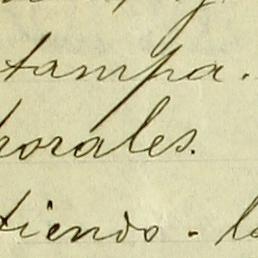 tampa.
orales.
tiendo - l